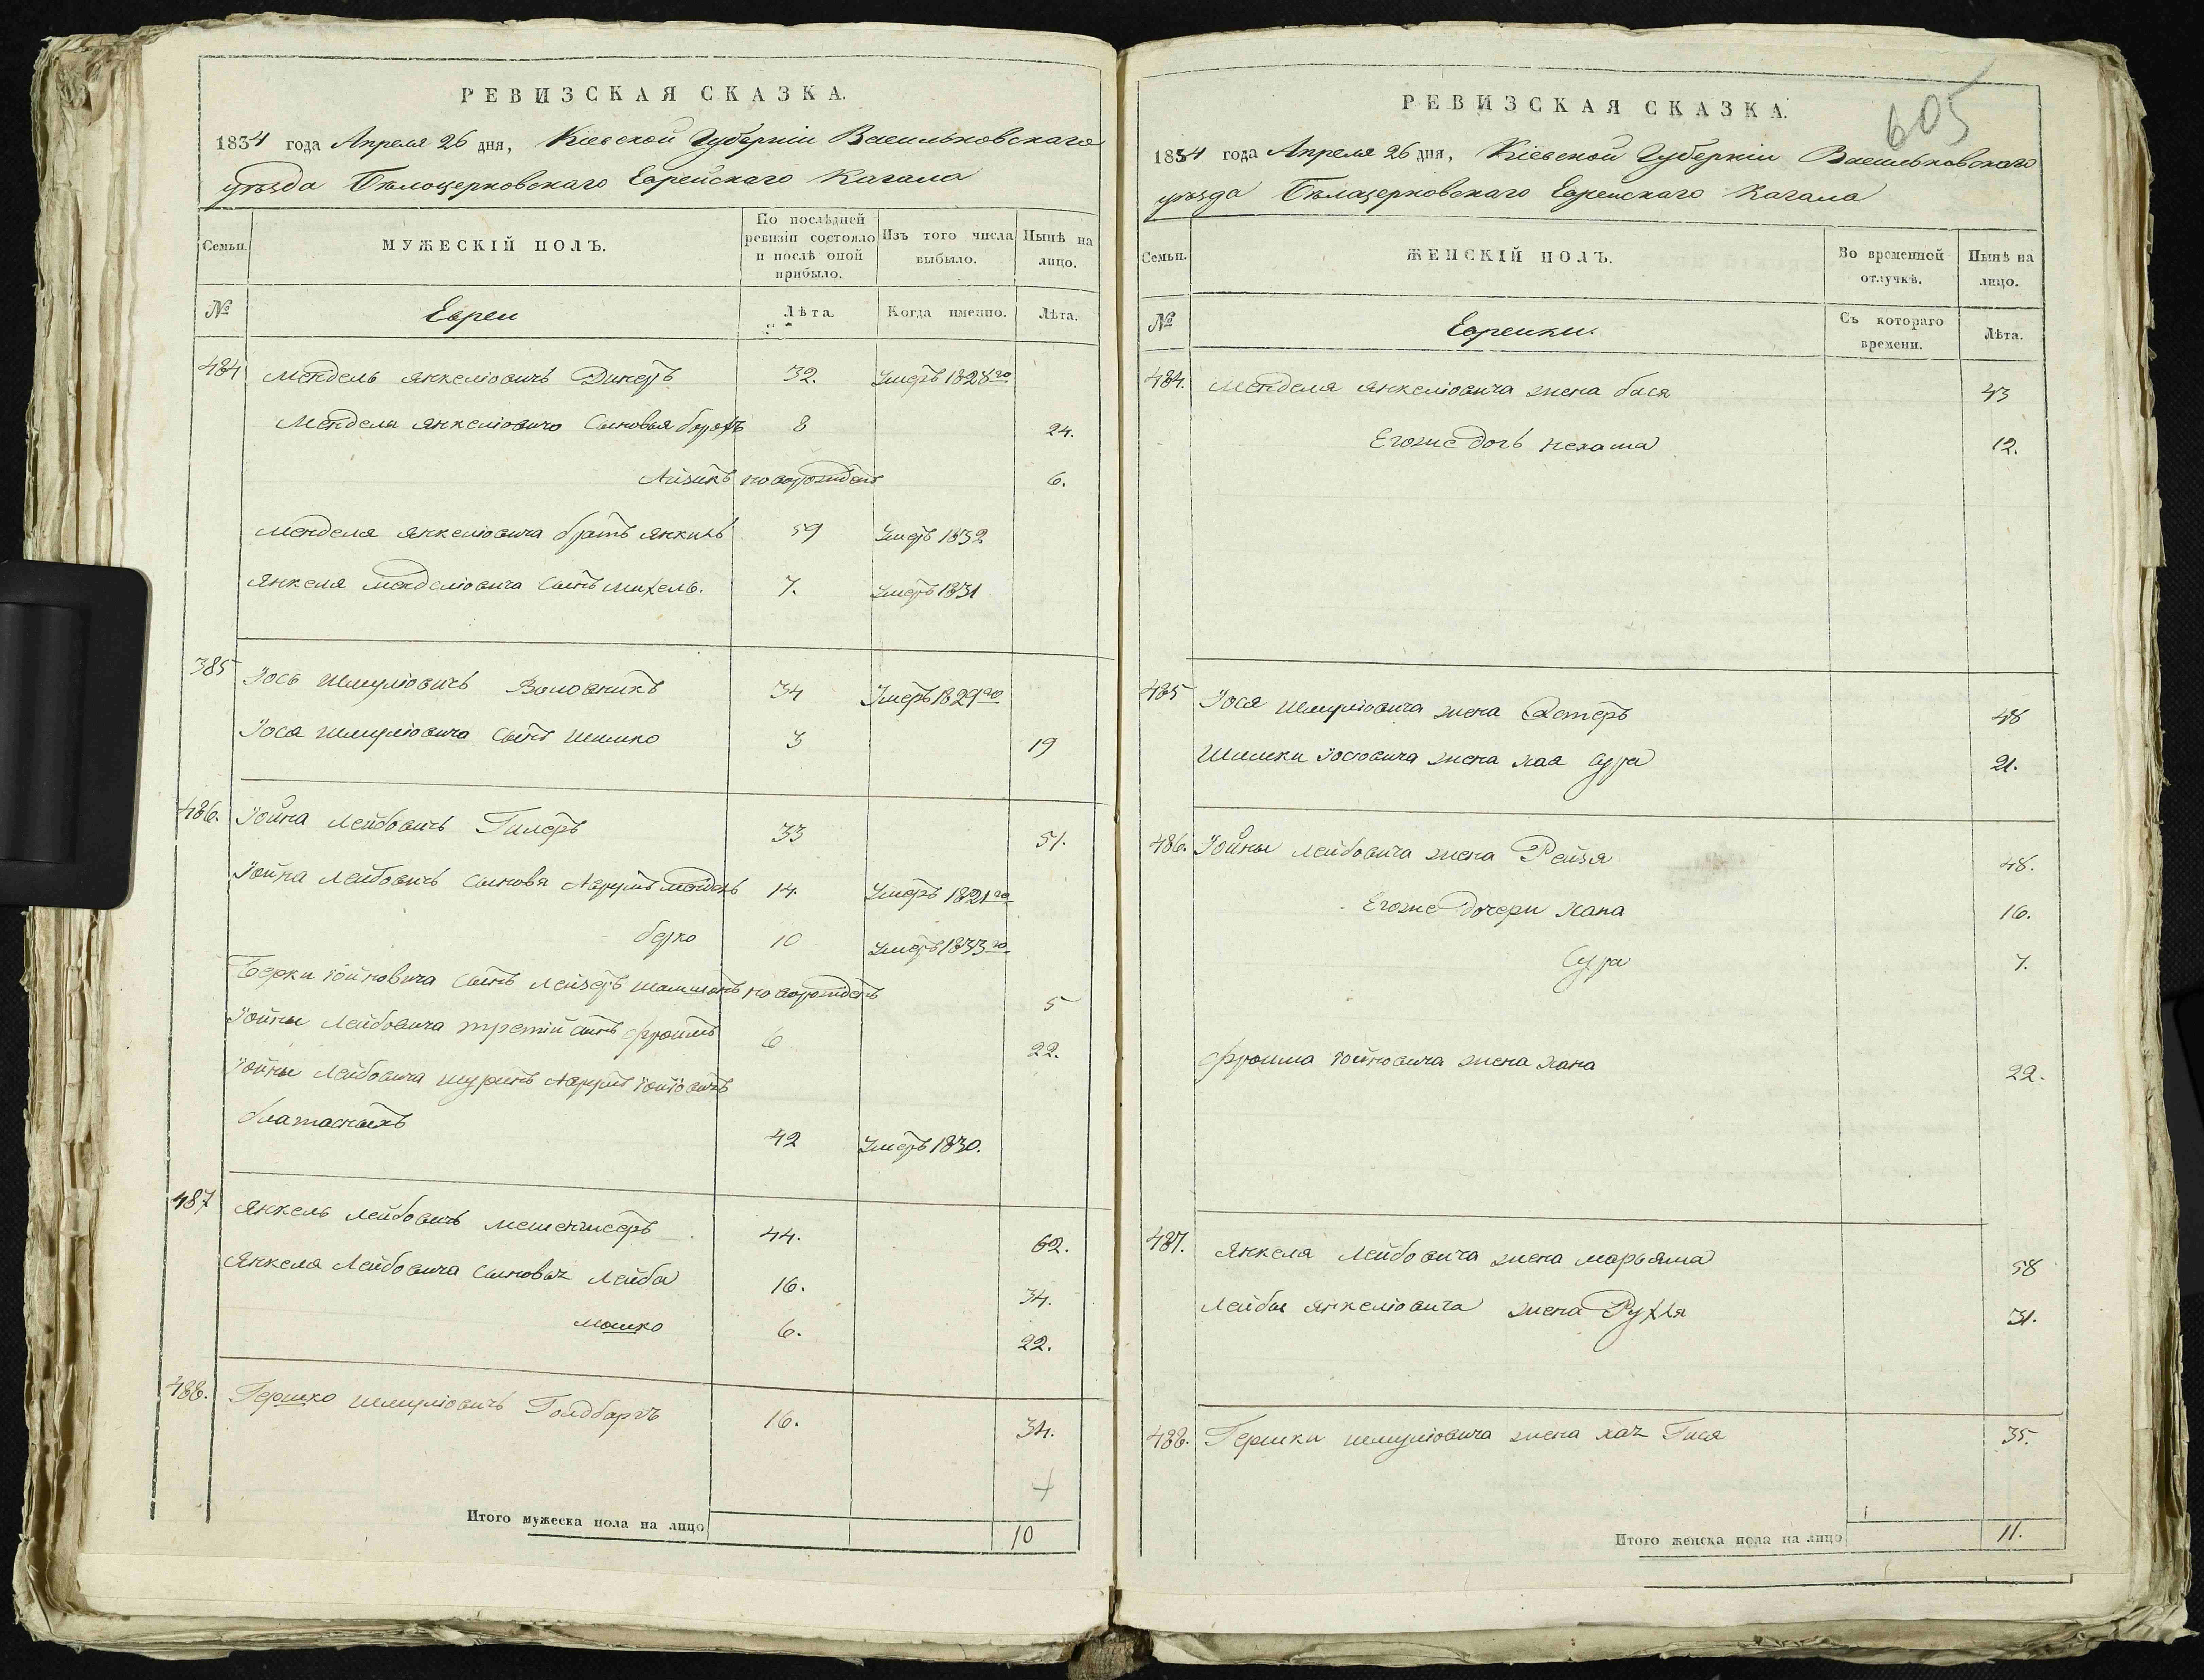 РЕВИЗСКАЯ СКАЗКА.
1834 года Апреля 26 дня, Кіевской Губерніи Васильковскаго
уѣзда Бѣлоцерковскаго Еврейскаго Кагала
Семьи.
МУЖЕСКІЙ ПОЛЪ.
По послѣдней ревизіи состояло и послѣ оной прибыло.
Изъ того числа выбыло.
Нынѣ на лицо.
№ Евреи Лѣта. Когда именно. Лѣта.
484 Мендель Янкеліовичъ Динеръ 32. Умеръ 1828го
Менделя Янкеліовича Сыновья Борохъ 8 24.
Айзикъ новорожденъ 6.
Менделя Янкеліовича братъ Янкиль 59 Умеръ 1832
Янкеля Менделіовича Сынъ Михель. 7. Умеръ 1831
385 Іось Шмуліовичъ Воловникъ 34 Умеръ 1829го
Іося Шмуліовича Сынъ Шимко 3 19
486. Іойна Лейбовичъ Гилеръ 33 51.
Іойна Лейбовичъ Сыновя Аврумъ Мендель 14. Умеръ 1821го
берко 10 Умеръ 1833го
Берки Іойновича Сынъ Лейзеръ новорожденъ 5
Іойны Лейбовича третій Сынъ Фроимъ 6 22.
Іойны Лейбовича шуринъ Аврумъ
42 Умеръ 1830.
487 Янкель Лейбовичъ 44. 62.
Янкеля Лейбовича Сыновья Лейба 16. 34.
Мошко 6. 22.
488. Гершко Шмуліовичъ Голдбаргъ 16. 34.
Итого мужеска пола на лицо 10
605
РЕВИЗСКАЯ СКАЗКА.
1834 года Апреля 26 дня, Кіевской Губерніи Васильковскаго
уѣзда Бѣлацерковскаго Еврейскаго Кагала
Семьи.
ЖЕНСКІЙ ПОЛЪ.
Во временной отлучкѣ.
Нынѣ на лицо.
№ Еврейки. Съ котораго времени. Лѣта.
484. Менделя Янкеліовича жена бася 43
Егоже дочь Нехама 12.
485 Іося Шмуліовича жена Эстеръ 48
Шимки Іосіовича жена Хая Сура 21.
486. Іойны Лейбовича жена Рейзя 48.
Егоже дочери Хана 16.
Сура 7.
Фроима Іойновича жена Хана 22.
487. Янкеля Лейбовича жена Марьяма 58
Лейбы Янкеліовича жена Рухля 31.
488. Гершки Шмуліовича жена Хая Гися 35.
Итого женска пола на лицо 11.